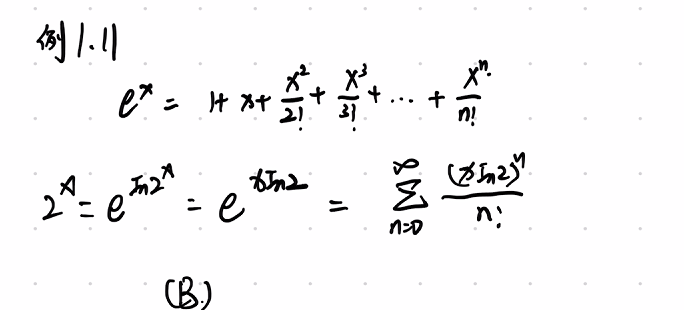 例1.11
e^x = 1 + x + x^2/2! + x^3/3! + ... + x^n/n!
2^x = e^{ln2^x} = e^{xln2} = ∑_{n=0}^{∞} (xln2)^n/n!
(B.)